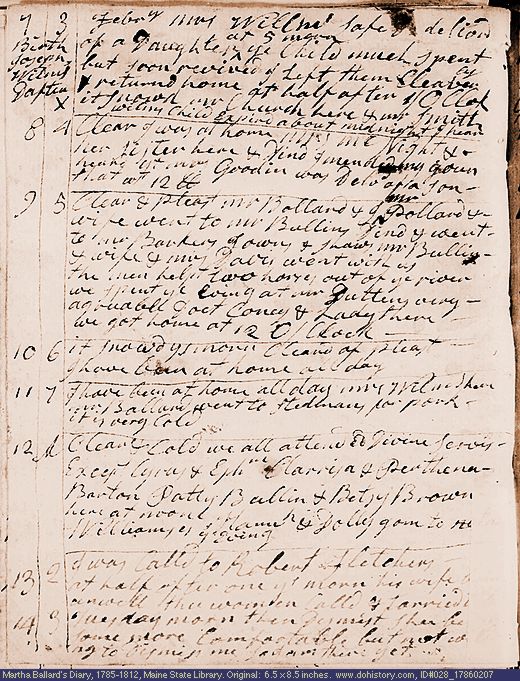 7 3 Febry mrs Willms safe delivd
Birth of a Daughter at 5 morn ye Child much spent
Joseph but soon revived I left them Cleaver
Willms
Dafter & returnd home at half after 10 Clok
X it snowd mr Church here & mr Smith
Willms Child Expird about midnight I hear
8 4 Clear I was at home mrs mc Night &
her sister here & Lind mending my gown
heard yt mrs Goodin was Delvd of a son
that at 12
9 5 Clear & pleast mr Ballard & I Pollard &
wife went to mr Bullins Lind & went
to mr Barkers gowns & shaws mr Bullin
& wife & mrs Davis went with us
the men helpt two horses out of ye river
we spent ye Evinng at mr Duttens very
agreable Doct Coney & Lady there
we got home at 12 O Clock
10 6 it snowd ys morn Cleard of pleast
I have been at home all day
11 7 I have been at home all day mrs Wilms here
mr Ballard went to Stedmans for pork
it is very Cold
12 Clear & Cold we all attended Divine servis
Except Cyrus & Ephm Clarrisa & Parthena
Barton Patty Bullin & Betsy Brown
here at noone
Williams Hannh & Dolly gom to
13 2 I was Calld to Robert Fletchers
at half after one ys morn his wife
unwell the women Calld & tarried
14 3 Tuesday morn then Dismist she be
some more Comfortable but not
ing to Dismis me I am there yet
Martha Ballard's Diary, 1785-1812, Maine State Library. Original: 6.5 x 8.5 inches. www.dohistory.com, ID#028_17860207